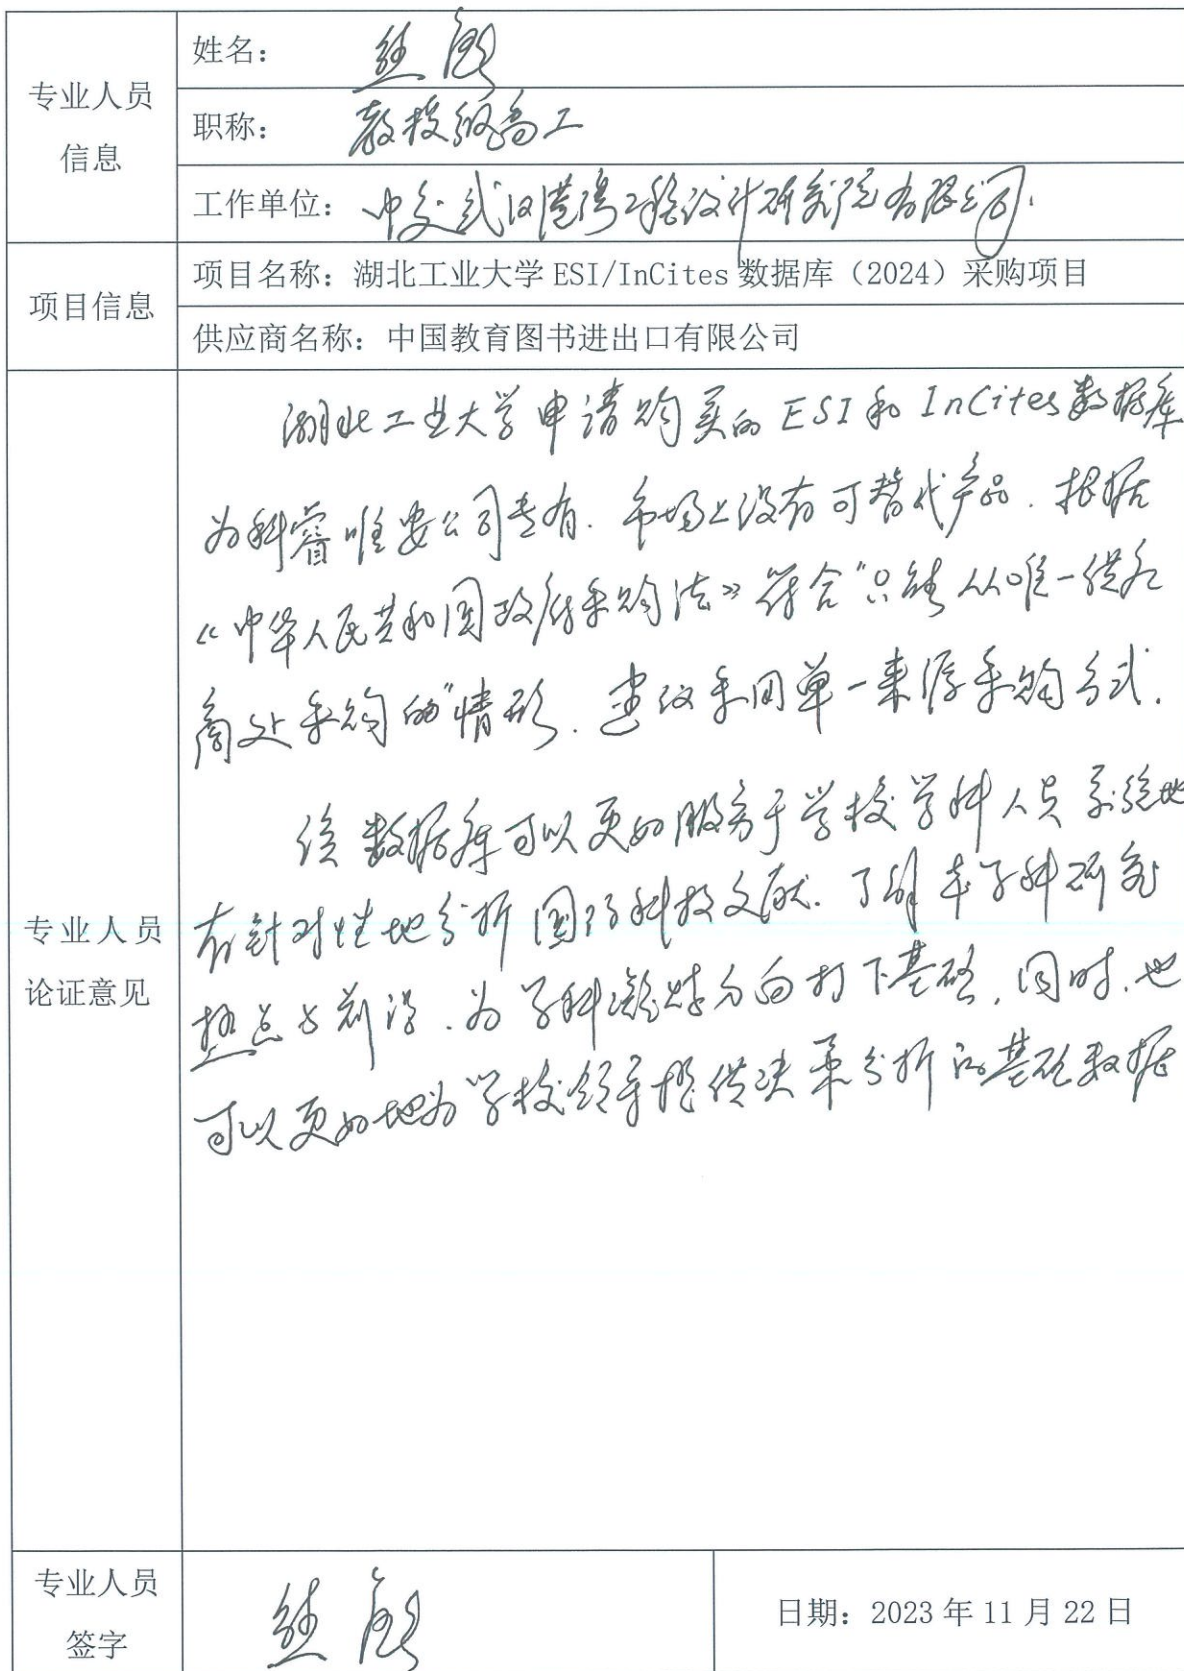 专业人员
信息
姓名：熊
职称：教授级高工
工作单位：中交武汉港湾工程设计研究院有限公司.
项目信息
项目名称：湖北工业大学 ESI/InCites 数据库（2024）采购项目
供应商名称：中国教育图书进出口有限公司
专业人员
论证意见
湖北工业大学申请购买的 ESI 和 InCites 数据库
为科睿唯安公司专有. 市场上没有可替代产品. 根据
《中华人民共和国政府采购法》符合"只能从唯一供应
商处采购的"情形. 建议采用单一来源采购方式.
该数据库可以更好服务于学校学科人员系统地
有针对性地分析国际科技文献. 了解本学科研究
热点与前沿. 为学科凝炼方向打下基础, 同时, 也
可以更好地为学校领导提供决策分析的基础数据
专业人员
签字
熊
日期：2023 年 11 月 22 日